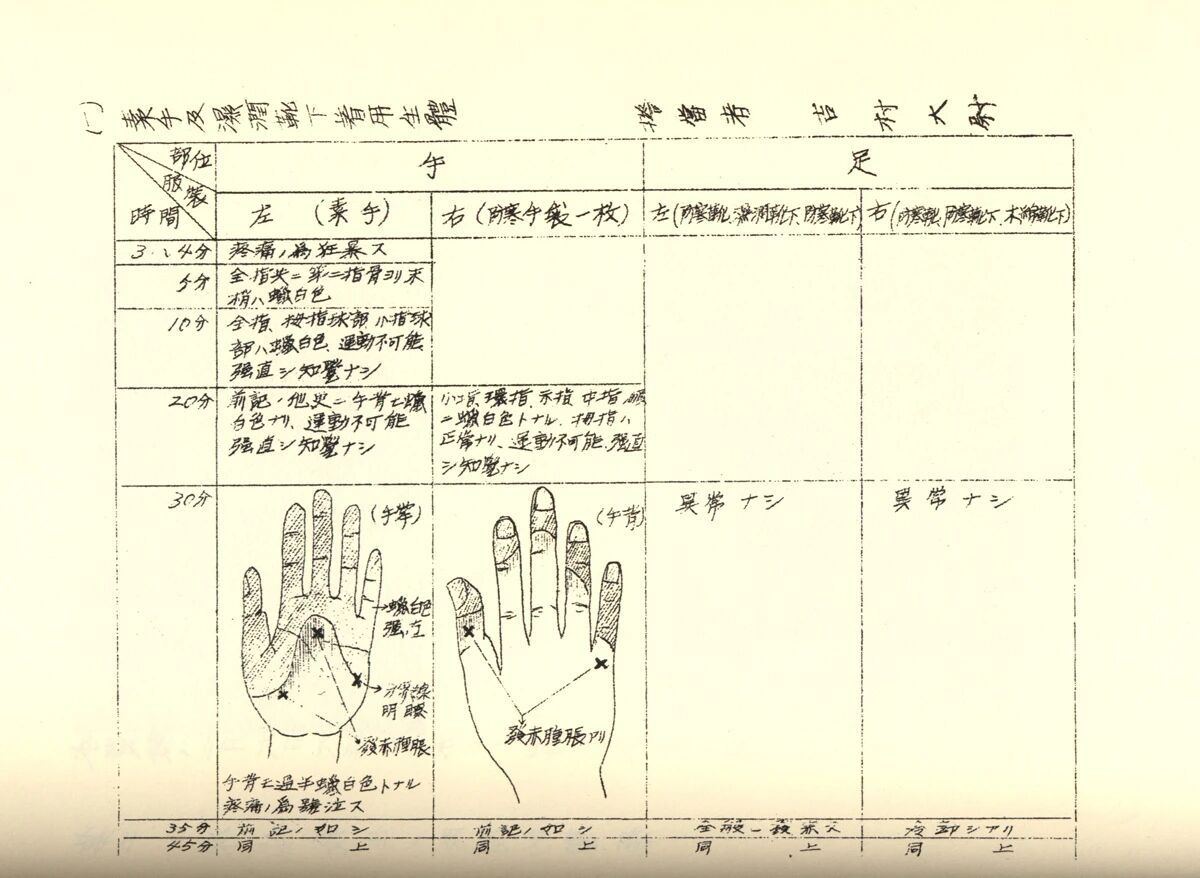 (一) 素手及濕潤靴下着用生體
擔當者 吉村大尉
部位
服裝
時間
手
足
左 (素手)
右 (防寒手袋一枚)
左(防寒靴、濕潤靴下、防寒靴下)
右(防寒靴、防寒靴下、木綿靴下)
3、4分
疼痛ノ為狂暴ス
5分
全指尖ニ第二指骨ヨリ末
梢ハ蠟白色
10分
全指、拇指球部、小指球
部ハ蠟白色、運動不可能
强直シ知覺ナシ
20分
前記ノ他更ニ手背モ蠟
白色ナリ、運動不可能
强直シ知覺ナシ
小指、環指、示指、中指、順
ニ蠟白色トナル、拇指ハ
正常ナリ、運動不可能、强直
シ知覺ナシ
30分
(手掌)
蠟白色
强直
分界線
明瞭
發赤腫脹
手背モ過半蠟白色トナル
疼痛ノ為號泣ス
(手背)
發赤腫脹アリ
異常ナシ
異常ナシ
35分
前記ノ如シ
前記ノ如シ
45分
同 上
同 上
同 上
同 上